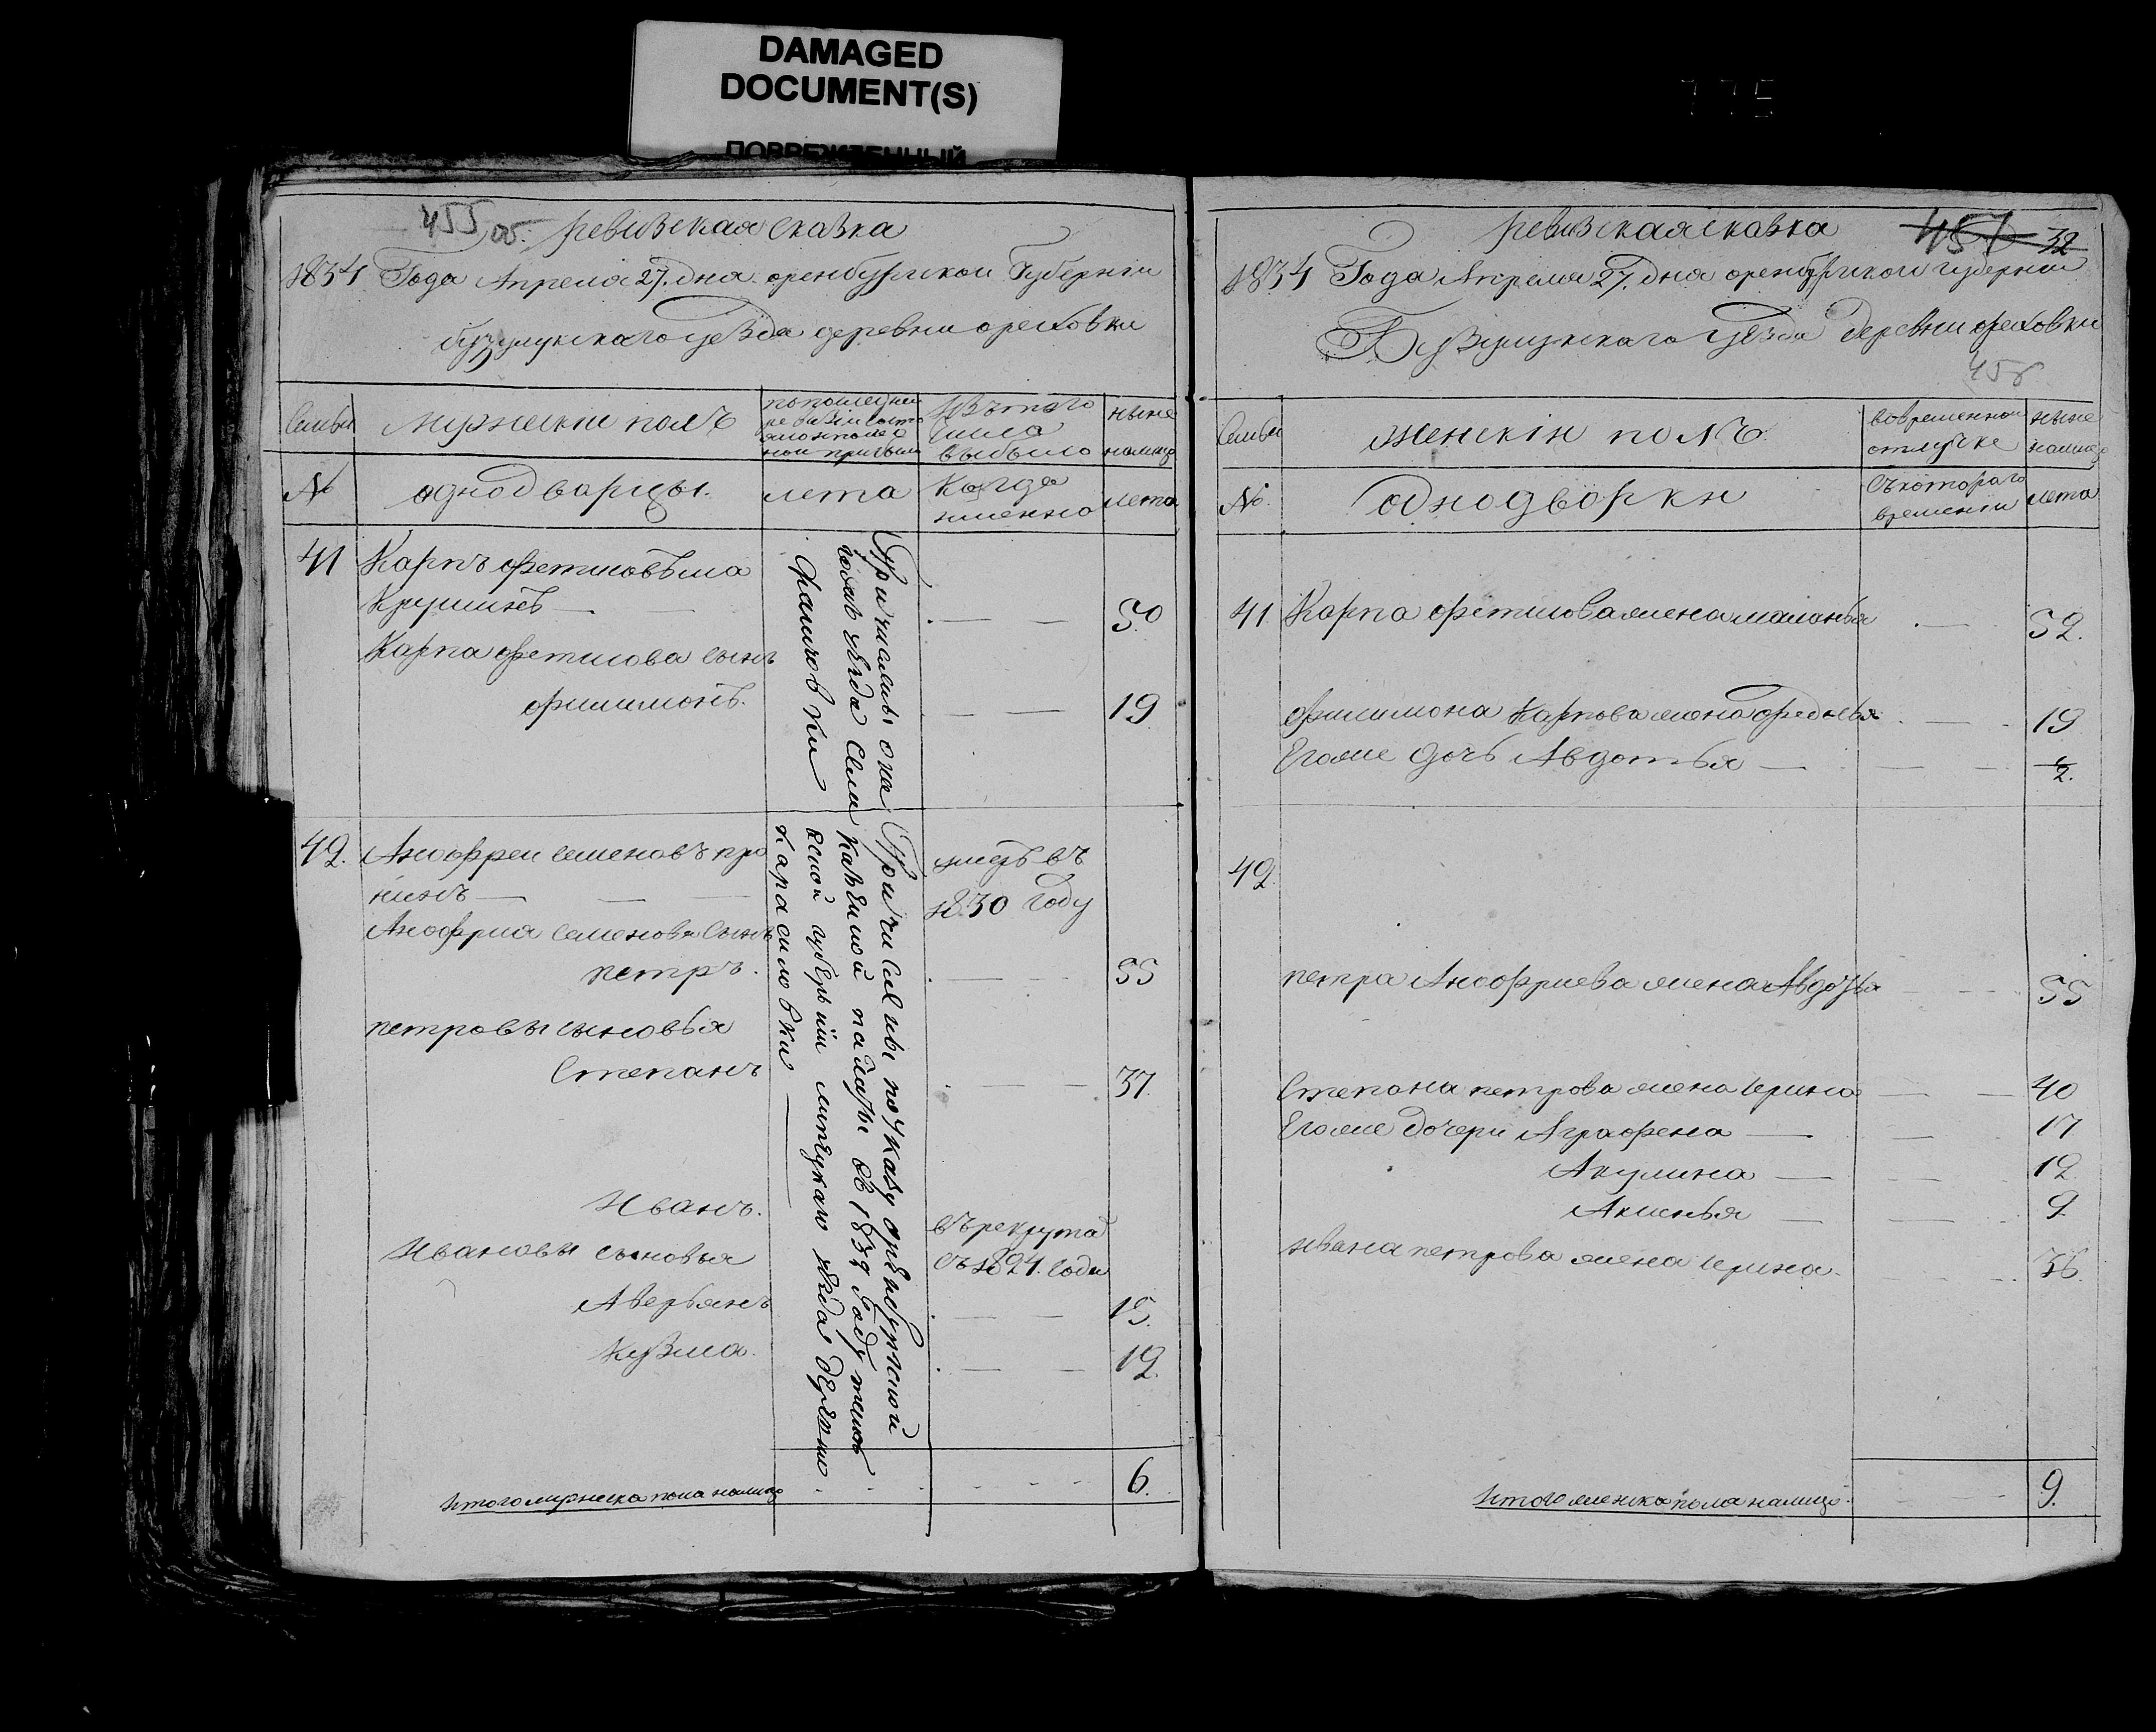 DAMAGED
DOCUMENT(S)
ПОВРЕЖДЕННЫЙ
455 об.
ревизская сказка
1834 Года Апреля 27. дня оренбургской Губернии
бузулукского уезда деревни ореховки
Семьи
мужески полъ
по последней
ревизии состо
яло и после о
ной прибыло
Изъ того
числа
выбыло
ныне
налицо
№
однодварцы.
лета
Когда
именно
лета
41
Карпъ фетисовъ
Карпа фетисова сынъ
50
филимонъ.
19
Причислены
уезда Села
42.
Анофреи семеновъ про
нинъ
умеръ въ
1830 Году
Анофрия семенова Сынъ
петръ.
55
петровы сыновья
Степанъ
37.
Иванъ.
въ рекрута
съ 1824. Года
Ивановы сыновья
Аверьянъ
15.
Кузма.
12.
Причислены по указу оренбургской
Казенной палаты въ 1834 Году
губернии уезда деревни
Карасиловки
Итого мужеска пола налицо
6.
ревизская сказка
457 32
1834 Года Апреля 27. дня оренбургской губернии
Бузулукского Уезда деревни ореховки
456
Семьи
женскін полъ.
во временной
отлучке
ныне
налицо
№.
однодворки
Съ котораго
времении
лета
41. Карпа фетисова жена маланья
52.
филимона Карпова жена федосья
19
Егоже дочь Авдотья
1/2.
42.
петра Анофриева жена Авдотья
55
Степана петрова жена Ирина
40
Егоже дочери Аграфена
17
Акулина
12
Аксенья
9
Ивана петрова жена ирина.
36.
Итого женска пола налицо.
9.